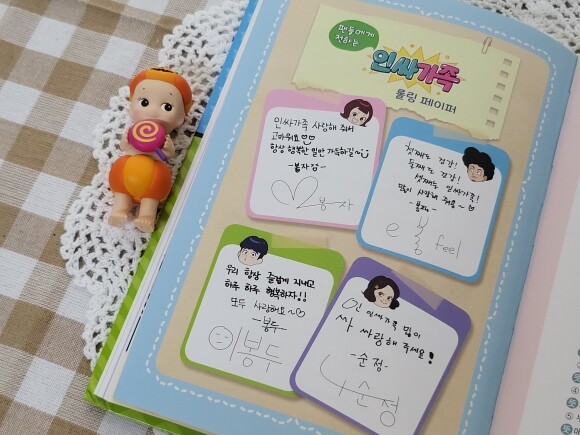 팬들에게
전하는
인싸가족
롤링 페이퍼
인싸가족 사랑해 줘서
고마워요♡♡
항상 행복한 일만 가득하길~
-봉자강-
봉자
첫째도 건강!
둘째도 건강!
셋째는 인싸가족!
많이 사랑해 줘용~♡
e봉feel
우리 항상 즐겁게 지내고
하루 하루 행복하자!!
모두 사랑해요~♡
-봉두-
이봉두
인 인싸가족 많이
싸 싸랑해 주세요!
-순정-
나순정